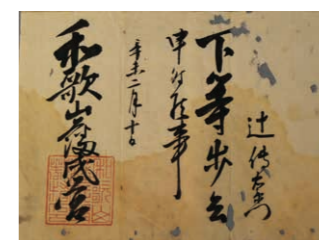 辻
下等歩兵
申付候事
辛未二月十日
和歌山藩戍営